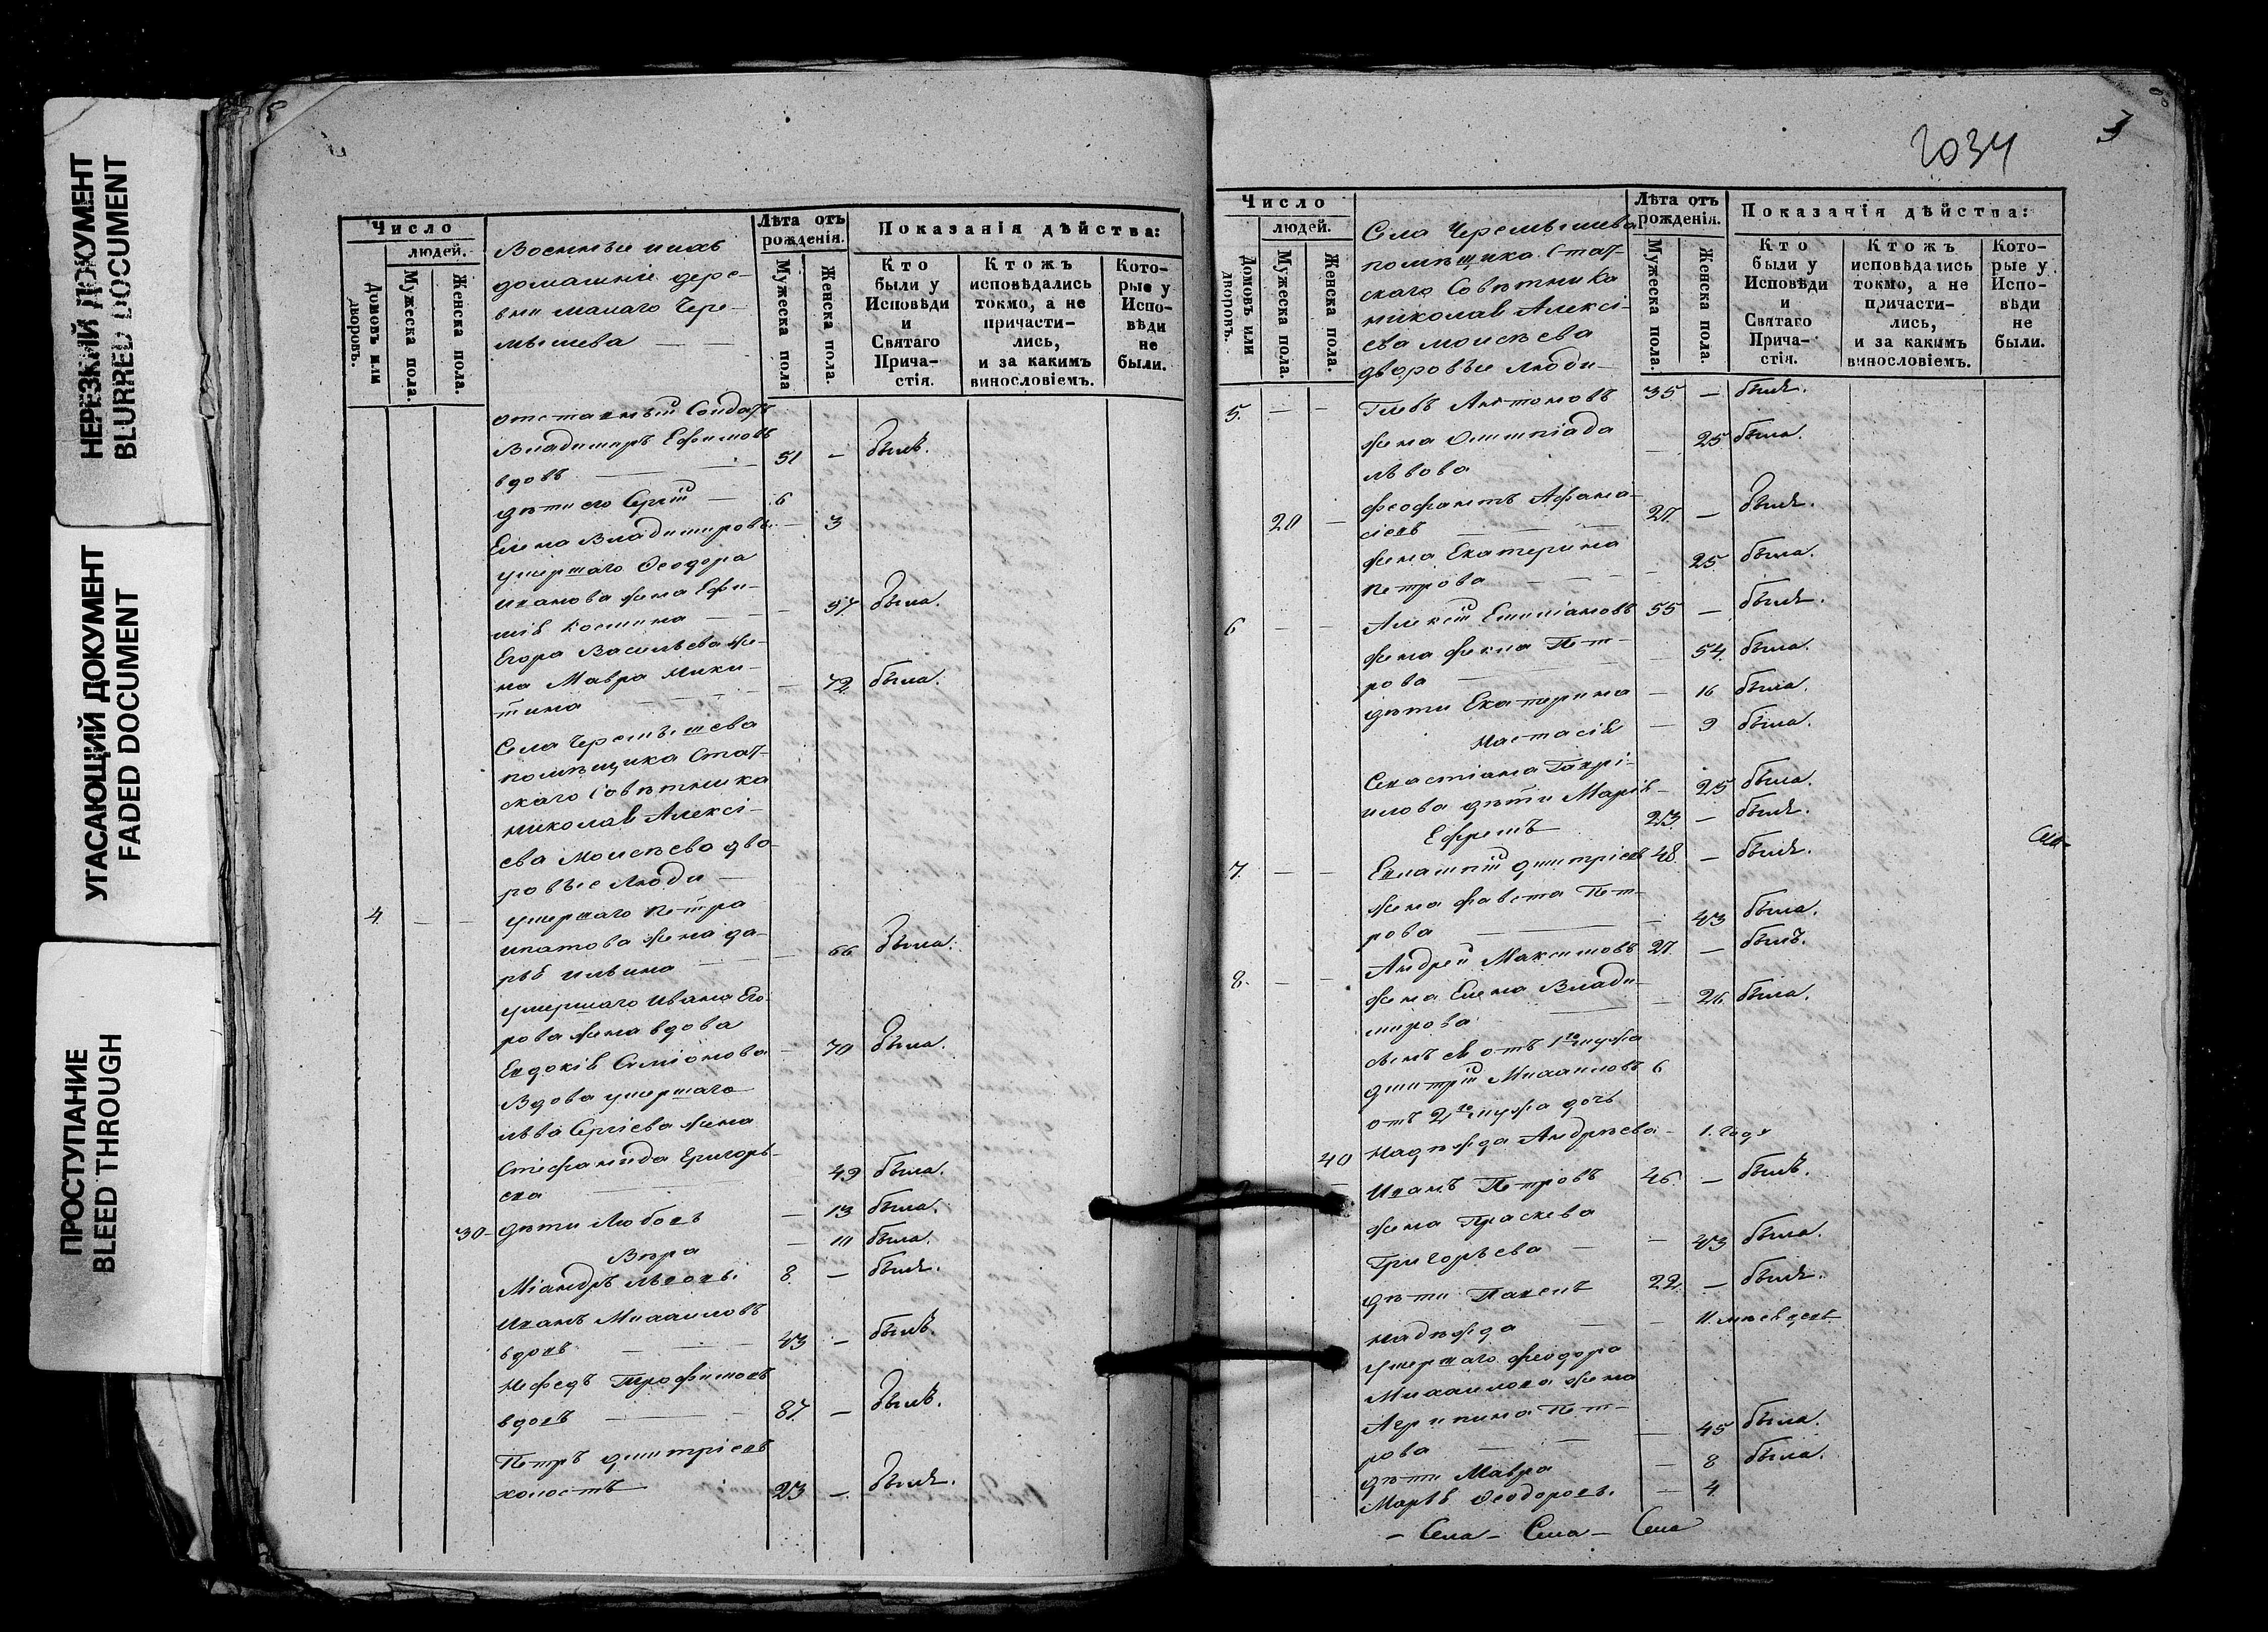 НЕРЕЗКИЙ ДОКУМЕНТ
BLURRED DOCUMENT
УГАСАЮЩИЙ ДОКУМЕНТ
FADED DOCUMENT
ПРОСТУПАНИЕ
BLEED THROUGH
Число
людей.
Домовъ или дворовъ.
Мужеска пола.
Женска пола.
Военные и ихъ
домашніе дере-
вни малаго Чере-
мышева
Лѣта отъ рожденія.
Мужеска пола
Женска пола.
Показанія дѣйства:
Кто были у Исповѣди и Святаго Прича- стія.
Ктожъ исповѣдались токмо, а не причасти- лись, и за какимъ винословіемъ.
Кото- рые у Испо- вѣди не были.
отставный Солдатъ
Владимиръ Ефимовъ
вдовъ 51 — былъ.
дѣти его Сергій — 6
Елена Владимировы — 3
умершаго Ѳеодора
Иванова жена Ефи-
мія Космина — былa.
Егора Васильева же-
на Мавра Ники-
тина — 72 была.
Села Черемышева
помѣщика Стат-
скаго Совѣтника
Николая Алексі-
ева Моисѣева дво-
ровые люди —
4 — — умершаго Петра
Ипатова жена Да-
рья Ильина — 66 была.
умершаго Ивана Его-
рова жена вдова
Евдокія Симіонова — 70 была.
Вдова умершаго
Льва Сергіева жена
Стефанида Григорь-
ева 49 была.
30 — дѣти Любовь — 13 была.
Вѣра — 10 была.
8. — былъ.
Иванъ Михаиловъ
вдовъ 43 — былъ.
Нефедъ Трофимовъ
вдовъ 87 — былъ.
Петръ Димитріевъ
холостъ 23 — былъ.
2034
3
Число
людей.
Домовъ или дворовъ.
Мужеска пола.
Женска пола.
Села Черемышева
помѣщика Стат-
скаго Совѣтника
Николая Алексі-
ева Моисѣева
дворовые люди —
Лѣта отъ рожденія.
Мужеска пола.
Женска пола.
Показанія дѣйства:
Кто были у Исповѣди и Святаго Прича- стія.
Ктожъ исповѣдались токмо, а не причасти- лись, и за какимъ винословіемъ.
Кото- рые у Испо- вѣди не были.
5. — — Глебъ Антоновъ 35 — былъ.
жена Олимпіада — 25 была.
Львова
20 — Феофанъ Афана-
сіевъ 27 — былъ.
жена Екатерина
Петрова — 25 была.
6 — — Алексій Емиліановъ 55 — былъ.
жена Фекла Пет-
рова — 54 была.
дѣти Екатерина — 16 была.
Настасія — 9 была.
Севастіана Гаврі-
илова дѣти Марія — 25 была.
Ефремъ 23 — былъ.
7. — — Евлампій Димитріевъ 48 — былъ.
жена Фавста Пет-
рова — 43 была.
8. — — Андрей Максимовъ 27 — былъ.
жена Елена Влади-
мирова — 26 была.
сынъ ея отъ 1го мужа
Димитрій Михаиловъ 6
отъ 2го мужа дочь
40 Надѣжда Андрѣева — 1. годъ
Иванъ Петровъ 46 — былъ.
жена Праскева
Григорьева — 43 была.
дѣти Павелъ 22 — былъ.
Надѣжда
умершаго Феодора
Михаилова жена
Агрипина Пет-
рова — 45 была.
дѣти Мавра — 8 была.
Марья Ѳеодоров. — 4
— Села — Села — Села